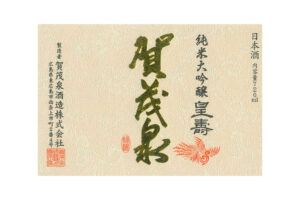 日本酒 内容量720ml
純米大吟醸 皇壽
賀茂泉
製造者 賀茂泉酒造株式会社
広島県東広島市西条上市町2番4号